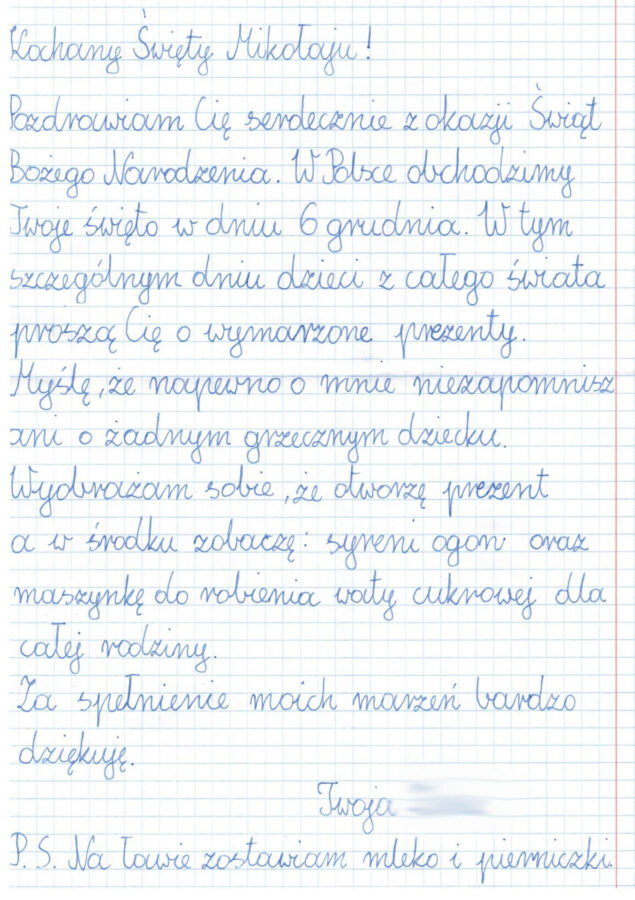 Kochany Święty Mikołaju!
Pozdrawiam Cię serdecznie z okazji Świąt
Bożego Narodzenia. W Polsce obchodzimy
Twoje święto w dniu 6 grudnia. W tym
szczególnym dniu dzieci z całego świata
proszą Cię o wymarzone prezenty.
Myślę, że napewno o mnie niezapomnisz
ani o żadnym grzecznym dziecku.
Wyobrażam sobie, że otworzę prezent
a w środku zobaczę: syreni ogon oraz
maszynkę do robienia waty cukrowej dla
całej rodziny.
Za spełnienie moich marzeń bardzo
dziękuję.
Twoja
P.S. Na ławie zostawiam mleko i pierniczki.